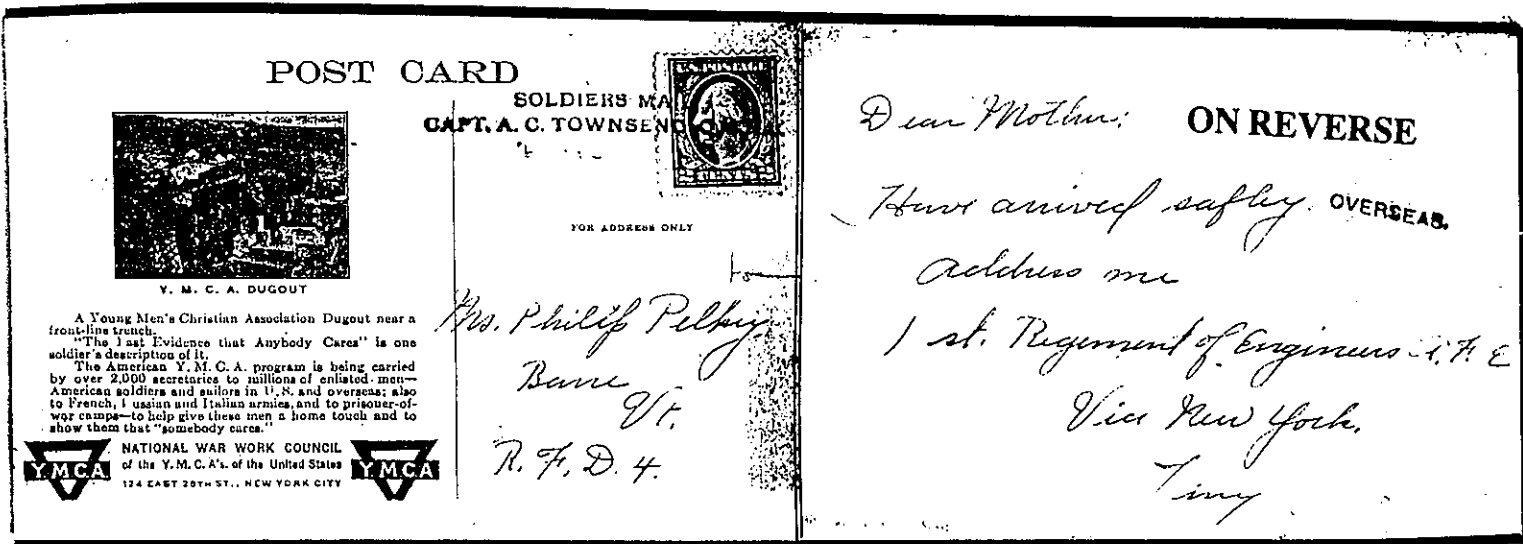 POST CARD
SOLDIERS MA
CAPT. A. C. TOWNSEND
U.S. POSTAGE
CENTS
FOR ADDRESS ONLY
Y. M. C. A. DUGOUT
A Young Men's Christian Association Dugout near a
front-line trench.
"The Last Evidence that Anybody Cares" is one
soldier's description of it.
The American Y. M. C. A. program is being carried
by over 2,000 secretaries to millions of enlisted men—
American soldiers and sailors in U.S. and overseas; also
to French, Russian and Italian armies, and to prisoner-of-
war camps—to help give these men a home touch and to
show them that "somebody cares."
YMCA
NATIONAL WAR WORK COUNCIL
of the Y. M. C. A's. of the United States
124 EAST 28TH ST., NEW YORK CITY
YMCA
to
Mrs. Philip Pelkey
Barre
Vt.
R. F. D. 4.
Dear Mother:
ON REVERSE
Have arrived safley.
OVERSEAS.
address me
1 st. Regement of Engineers
Via New York.
Tiny